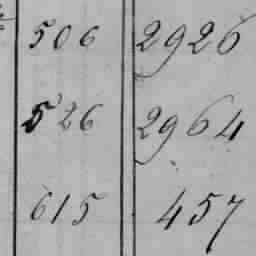 506 2926
526 2964
615 457